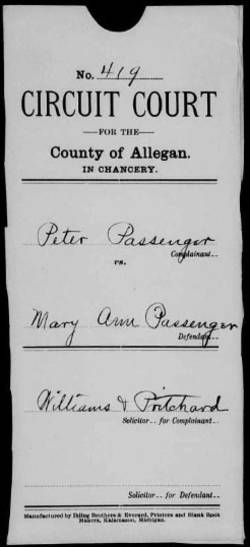 No. 419
CIRCUIT COURT
—FOR THE—
County of Allegan.
IN CHANCERY.
Peter Passenger
Complainant..
vs.
Mary Ann Passenger
Defendant..
Williams & Pritchard
Solicitor.. for Complainant..
Solicitor.. for Defendant..
Manufactured by Ihling Brothers & Everard, Printers and Blank Book
Makers, Kalamazoo, Michigan.